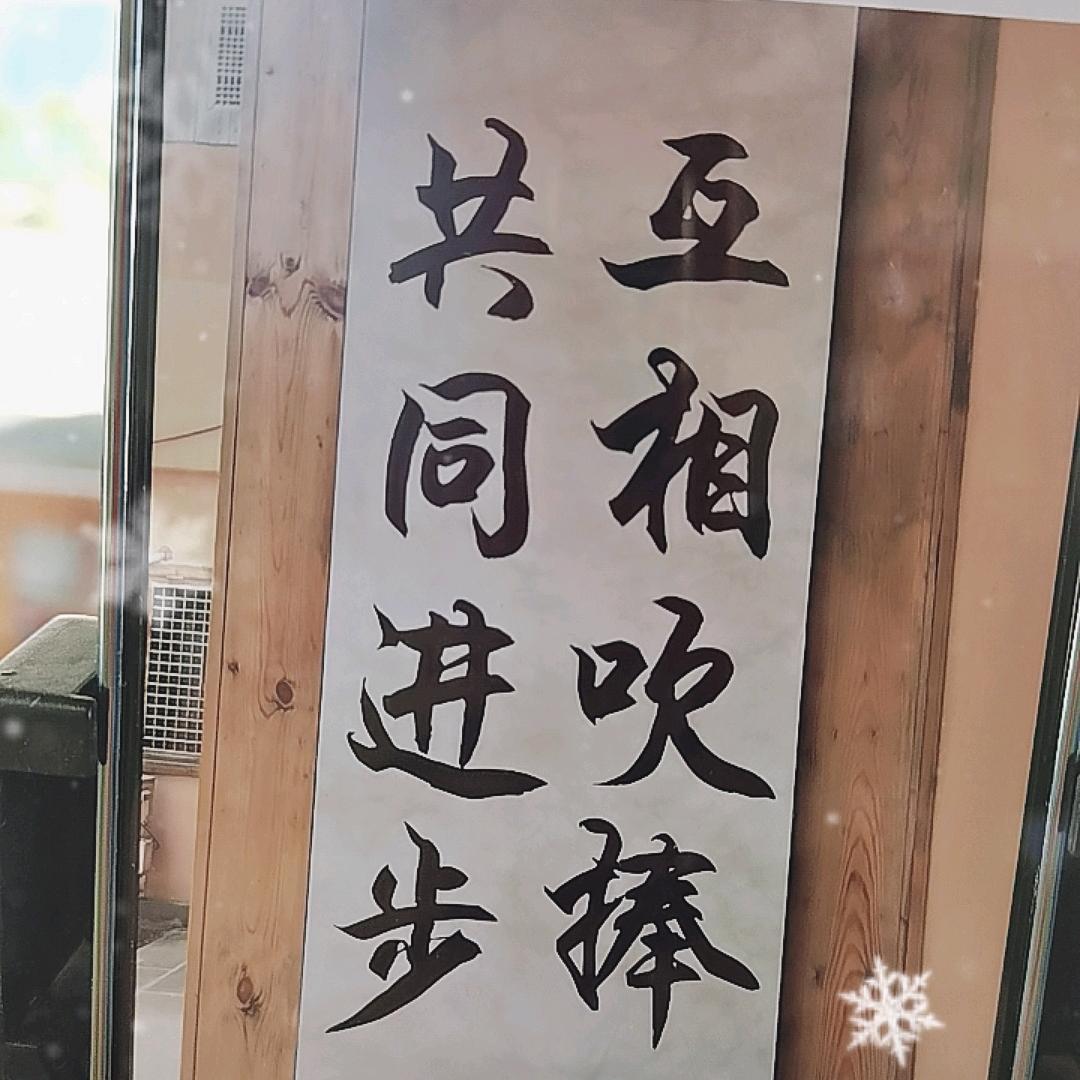 互相吹捧
共同进步